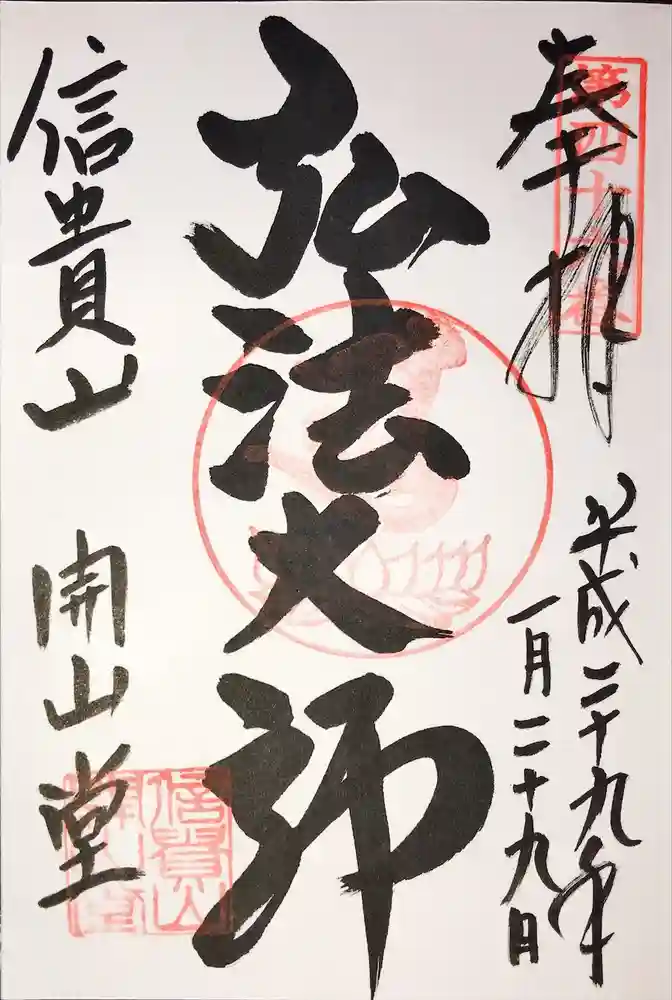 奉拝
平成二十九年
一月二十九日
弘法大師
信貴山 開山堂
信貴山
開山堂